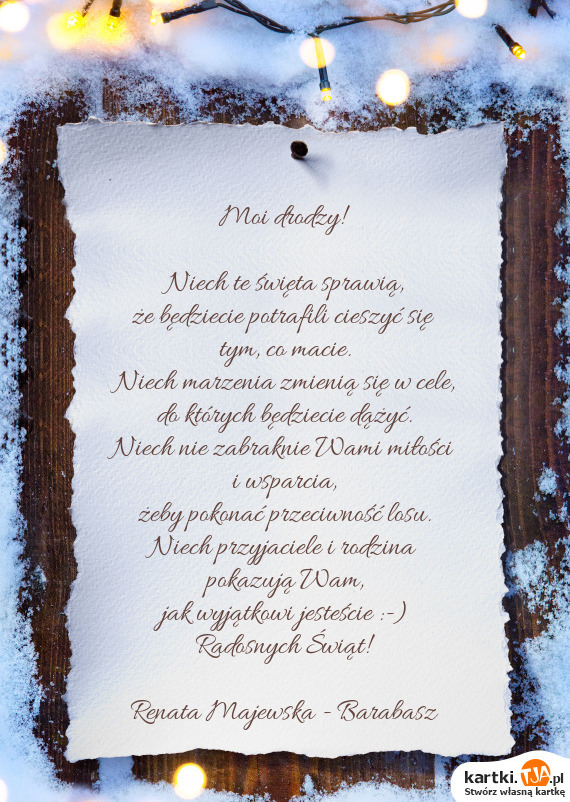 Moi drodzy!
Niech te święta sprawią,
że będziecie potrafili cieszyć się
tym, co macie.
Niech marzenia zmienią się w cele,
do których będziecie dążyć.
Niech nie zabraknie Wami miłości
i wsparcia,
żeby pokonać przeciwność losu.
Niech przyjaciele i rodzina
pokazują Wam,
jak wyjątkowi jesteście :-)
Radosnych Świąt!
Renata Majewska - Barabasz
kartki.TJA.pl
Stwórz własną kartkę